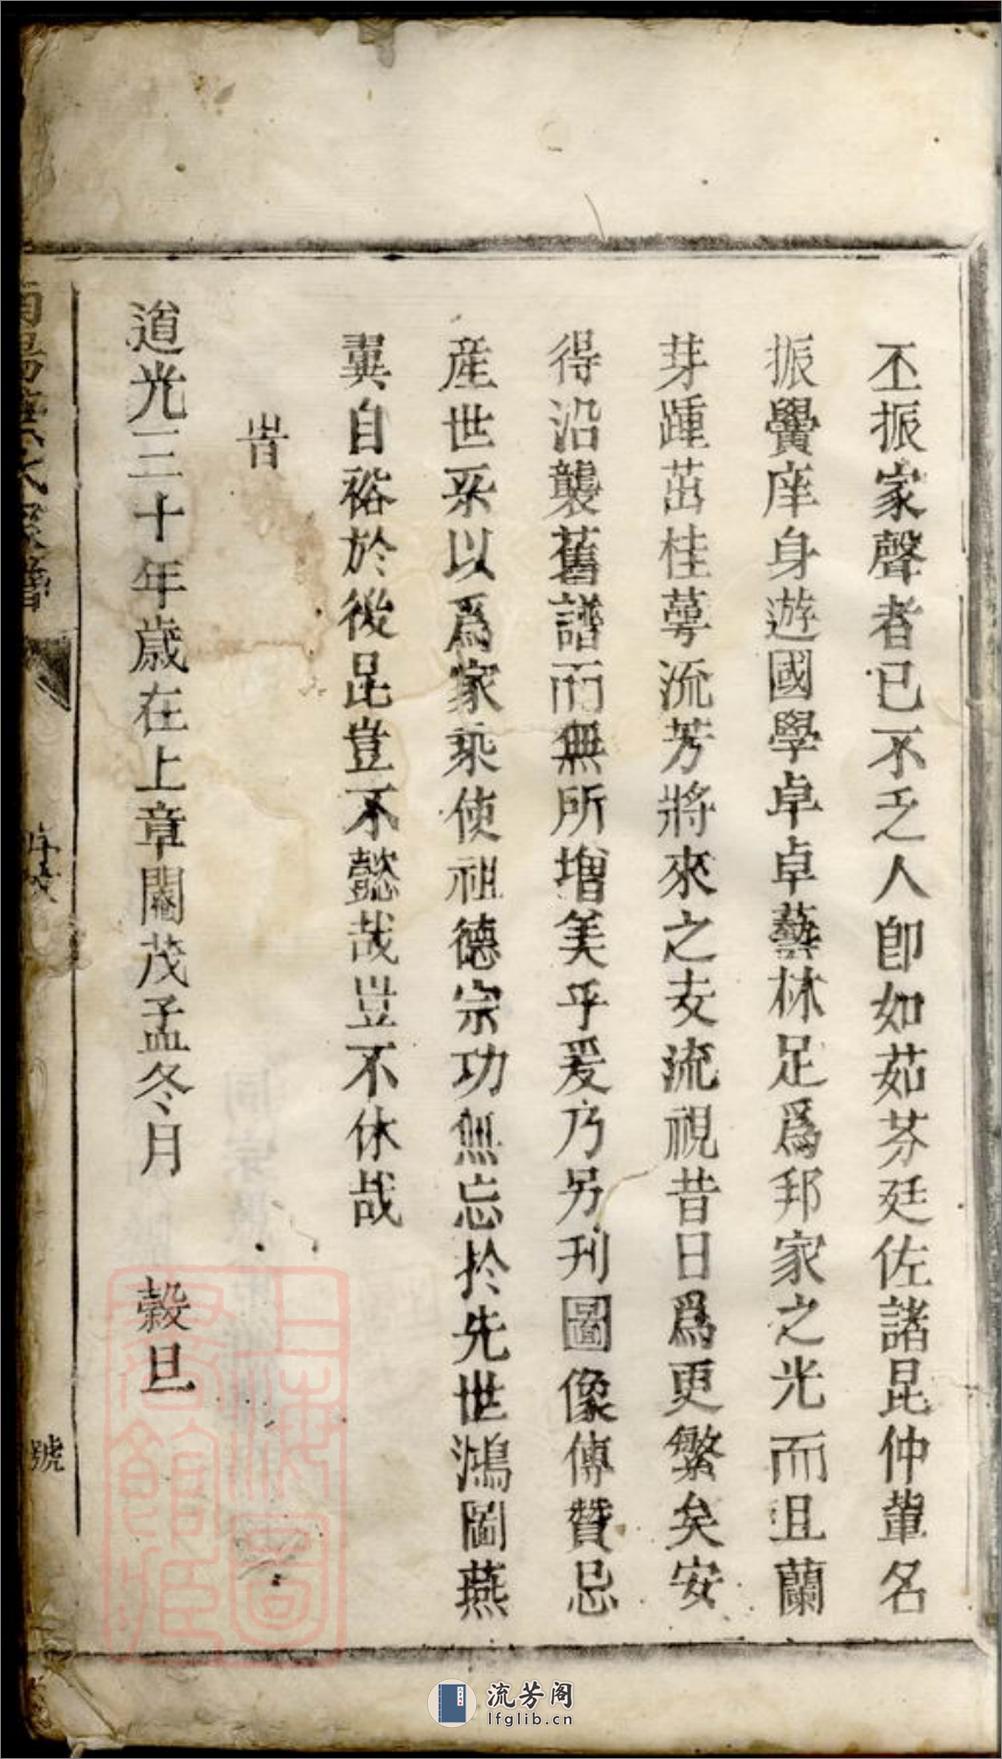 丕振家聲者已不乏人卽如茹芬廷佐諸昆仲軰名
振黌庠身遊國學卓卓藝林足爲邦家之光而且蘭
芽踵茁桂萼流芳將來之支流視昔日爲更繁矣安
得沿襲舊譜而無所增美乎爰乃另刋圖像傳贊忌
産世系以爲家乘使祖德宗功無忘扵先世鴻圖燕
翼自裕於後昆豈不懿哉豈不休哉
旹
道光三十年歲在上章閹茂孟冬月 榖旦
氏家譜
號
上海圖書館藏
流芳阁
lfglib.cn